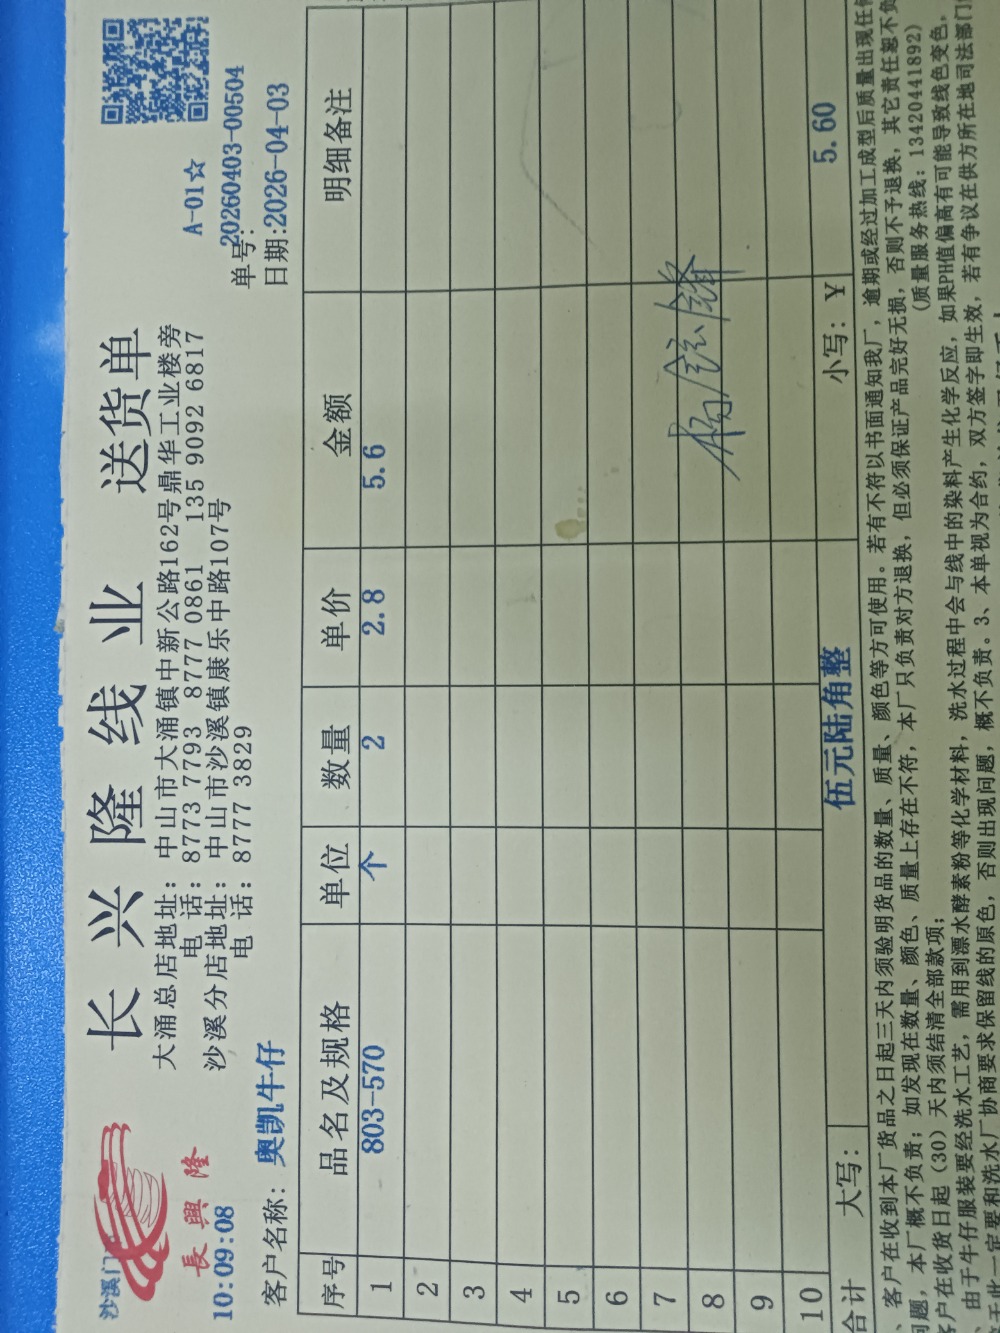 长兴隆线业 送货单
A-01☆
大涌总店地址：中山市大涌镇中新公路162号鼎华工业楼旁
电 话：8773 7793 8777 0861 135 9092 6817
沙溪分店地址：中山市沙溪镇康乐中路107号
电 话：8777 3829
沙溪门
長興隆
10:09:08
单号：20260403-00504
日期:2026-04-03
客户名称：奥凯牛仔
序号 品名及规格 单位 数量 单价 金额 明细备注
1 803-570 个 2 2.8 5.6
2
3
4
5
6
7
8
9
10
合计 大写： 伍元陆角整 小写：￥ 5.60
、客户在收到本厂货品之日起三天内须验明货品的数量、质量、颜色等方可使用。若有不符以书面通知我厂，逾期或经过加工成型后质量出现任何
问题，本厂概不负责；如发现在数量、颜色、质量上存在不符，本厂只负责对方退换，但必须保证产品完好无损，否则不予退换，其它责任恕不负
客户在收货日起（30）天内须结清全部款项； (质量服务热线：13420441892)
、由于牛仔服装要经洗水工艺，需用到漂水酵素粉等化学材料，洗水过程中会与线中的染料产生化学反应，如果PH值偏高有可能导致线色变色，
于此一定要和洗水厂协商要求保留线的原色，否则出现问题，概不负责。3、本单视为合约，双方签字即生效，若有争议在供方所在地司法部门